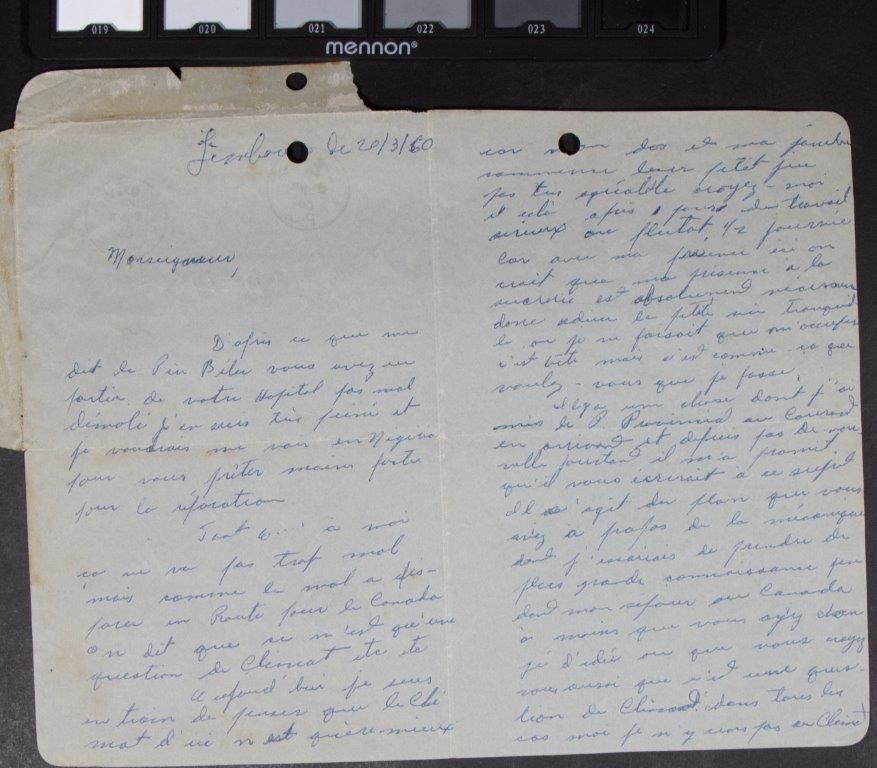 019 020 021 022 023 024
mennon®
de 20/3/60
Monseigneur,
D'après ce que me
dit le Père Biler vous avez une
partie de votre Hopital pas mal
démoli j'en suis très peiné et
je voudrais me voir en
pour vous prêter mains forte
pour la réparation
Tant à moi
ca ne va pas trop mal
mais comme le mal a
en Route pour le Canada
on dit que ce n'est qu'une
question de Climat etc etc
Aujourd'hui je suis
en train de penser que le Cli
mat d'ici n'est guère mieux
car mon dos et ma jambe
leur petit jeu
pas très agréable croyez-moi
et cela après jours de travail
sérieux ou plutot 1/2 journée
Car avec ma présence ici on
croit que ma présence à la
sucrerie est absolument nécessaire
donc adieu la petite vie tranquil
le ou je ne faisait que m'occuper
c'est bête mais c'est comme ca que
voulez-vous que je fasse,
Il y a une chose dont j'ai
mis le P. Provincial au Courant
en arrivant et depuis pas de nou-
velle pourtant il m'a promit
qu'il vous ecrirait à ce sujet
Il s'agit du plan que vous
aviez à propos de la mécanique
dont j'essairais de prendre de
plus grande connaissance
dant mon séjour au Canada
à moins que vous ayiy chan
gé d'idée ou que vous croyy
vous aussi que c'est une ques-
tion de Climat, dans tous les
cas moi je n'y crois pas au Climat